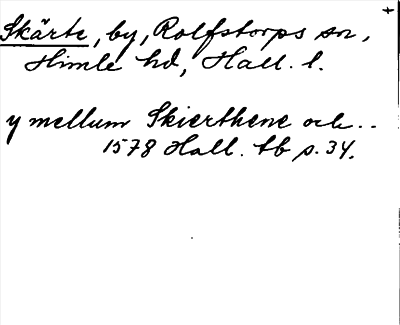 Skärte, by, Rolfstorps sn,
Himle hd, Hall. l.
y mellum Skierthene och..
1578 Hall. tb s. 34.